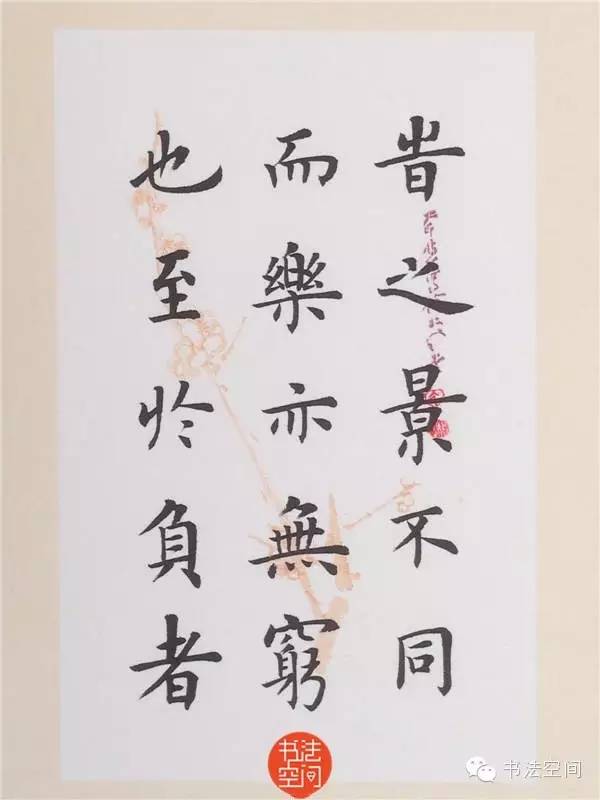 旹之景不同
而樂亦無窮
也至於負者
书法空间
书法空间